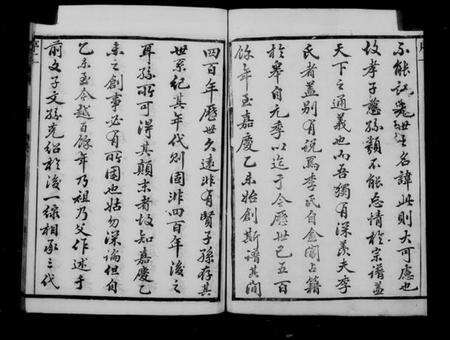 不能認先世之名諱此則大可應也
故孝子慈孫類不能忘情於宗譜蓋
天下之通義也而吾獨有深羨夫李
氏者蓋別有說焉李氏自金閶占籍
於皋自元季以迄于今歷世已五百
餘年至嘉慶乙未始創斯譜其間
四百年歷世久遠非有賢子孫存其
世系紀其年代則固非四百年後之
耳孫所可得其顛末者故知嘉慶乙
未之創事必有所因也姑勿深論但自
乙未至今越百餘年乃祖乃父作述于
前文子文孫光紹於後一線相承三代